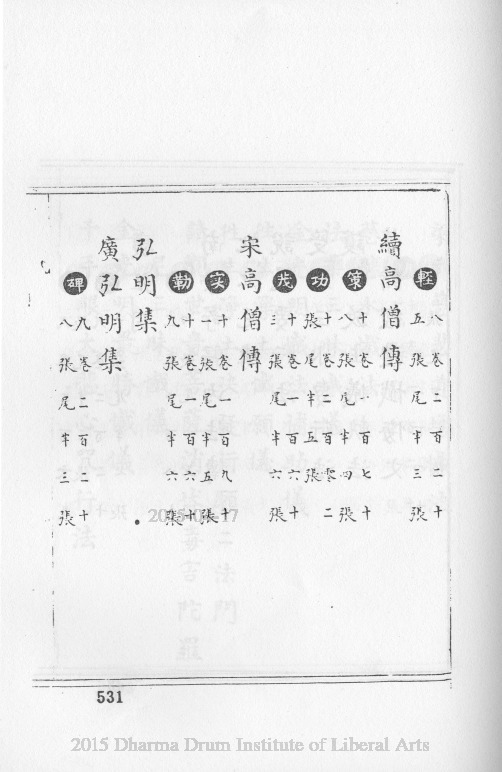 輕
八卷二百二十
五張尾半三張
續高僧傳
策
十卷一百七十
八張尾半四張
功
十卷二百零二
張尾半五張
茂
十卷一百六十
三張尾半六張
宋高僧傳
実
十卷一百九十
一張尾半五張
勒
十卷一百六十
九張尾半六張
弘明集
廣弘明集
碑
九卷二百二十
八張尾半三張
531
2015 Dharma Drum Institute of Liberal Arts